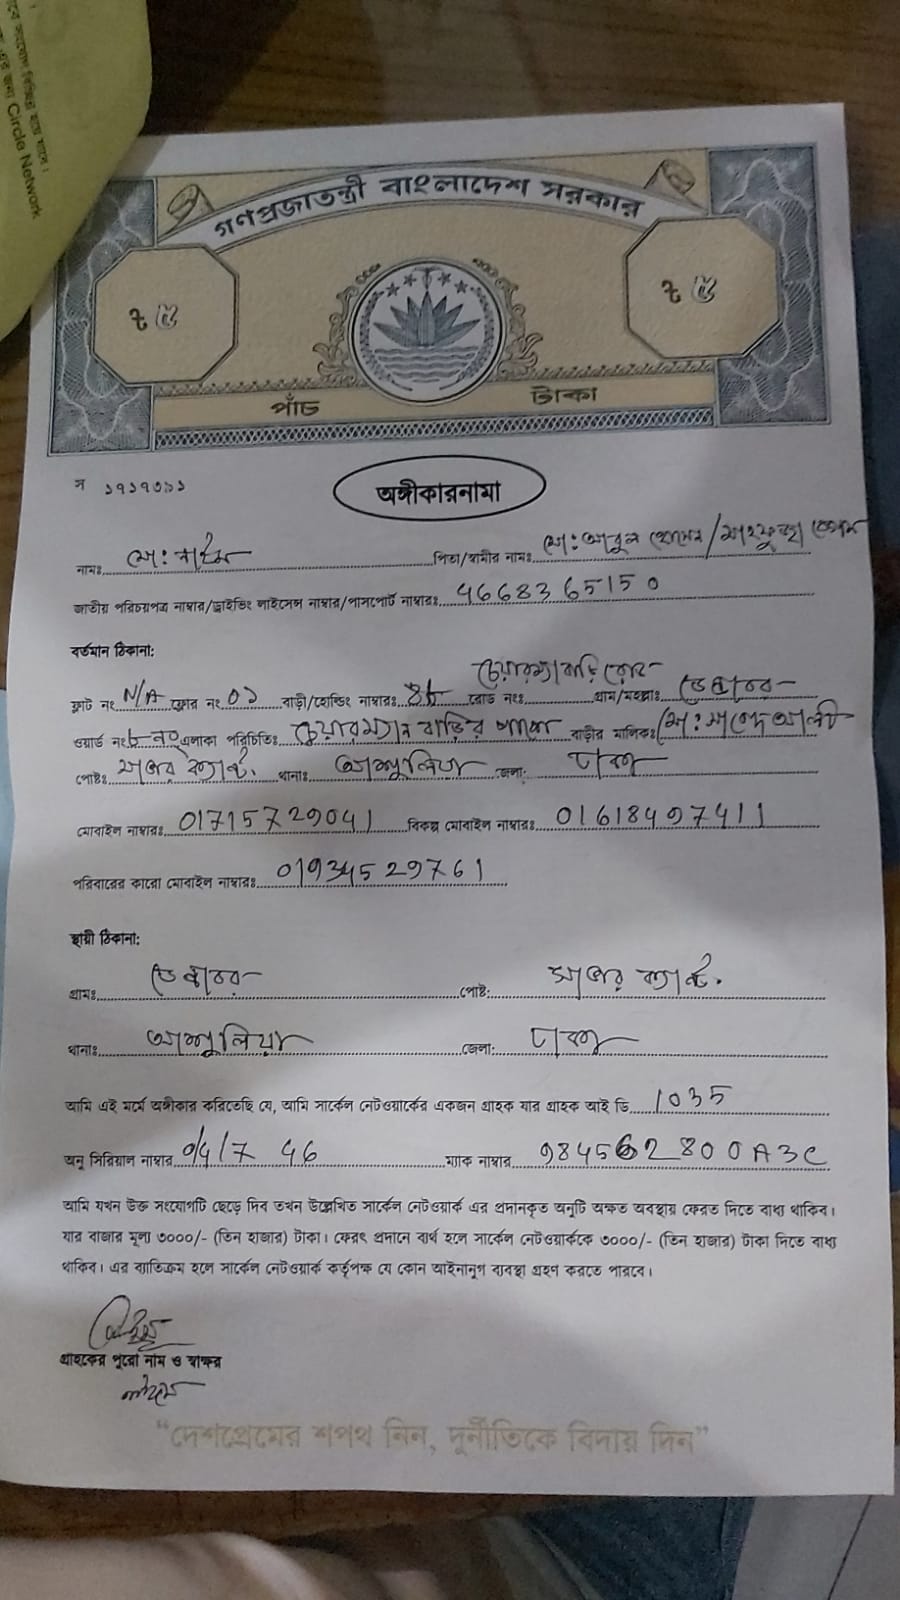 বে সংযোগ বিচ্ছিন্ন হয়ে যাবে।
এর জন্য Circle Network
গণপ্রজাতন্ত্রী বাংলাদেশ সরকার
৳ ৫
৳ ৫
পাঁচ টাকা
স ১৭১৭৩৯১
অঙ্গীকারনামা
নামঃ মো: নাইম পিতা/স্বামীর নামঃ মো: আবুল হোসেন /
জাতীয় পরিচয়পত্র নাম্বার/ড্রাইভিং লাইসেন্স নাম্বার/পাসপোর্ট নাম্বারঃ 4668365150
বর্তমান ঠিকানা:
ফ্লাট নং N/A ফ্লোর নং 01 বাড়ী/হোল্ডিং নাম্বারঃ রোড নংঃ গ্রাম/মহল্লাঃ
ওয়ার্ড নংঃ ৮ নং এলাকা পরিচিতিঃ চেয়ারম্যান বাড়ির পাশে বাড়ীর মালিকঃ
পোষ্টঃ সাভার ক্যান্ট. থানাঃ আশুলিয়া জেলা: ঢাকা
মোবাইল নাম্বারঃ 01715729041 বিকল্প মোবাইল নাম্বারঃ 01618497411
পরিবারের কারো মোবাইল নাম্বারঃ 01934529761
স্থায়ী ঠিকানা:
গ্রামঃ পোষ্ট: সাভার ক্যান্ট.
থানাঃ আশুলিয়া জেলা: ঢাকা
আমি এই মর্মে অঙ্গীকার করিতেছি যে, আমি সার্কেল নেটওয়ার্কের একজন গ্রাহক যার গ্রাহক আই ডি 1035
অনু সিরিয়াল নাম্বার ম্যাক নাম্বার 984562800A3C
আমি যখন উক্ত সংযোগটি ছেড়ে দিব তখন উল্লেখিত সার্কেল নেটওয়ার্ক এর প্রদানকৃত অনুটি অক্ষত অবস্থায় ফেরত দিতে বাধ্য থাকিব।
যার বাজার মূল্য ৩০০০/- (তিন হাজার) টাকা। ফেরৎ প্রদানে ব্যর্থ হলে সার্কেল নেটওয়ার্ককে ৩০০০/- (তিন হাজার) টাকা দিতে বাধ্য
থাকিব। এর ব্যাতিক্রম হলে সার্কেল নেটওয়ার্ক কর্তৃপক্ষ যে কোন আইনানুগ ব্যবস্থা গ্রহণ করতে পারবে।
গ্রাহকের পুরো নাম ও স্বাক্ষর
নাইম
“দেশপ্রেমের শপথ নিন, দুর্নীতিকে বিদায় দিন”